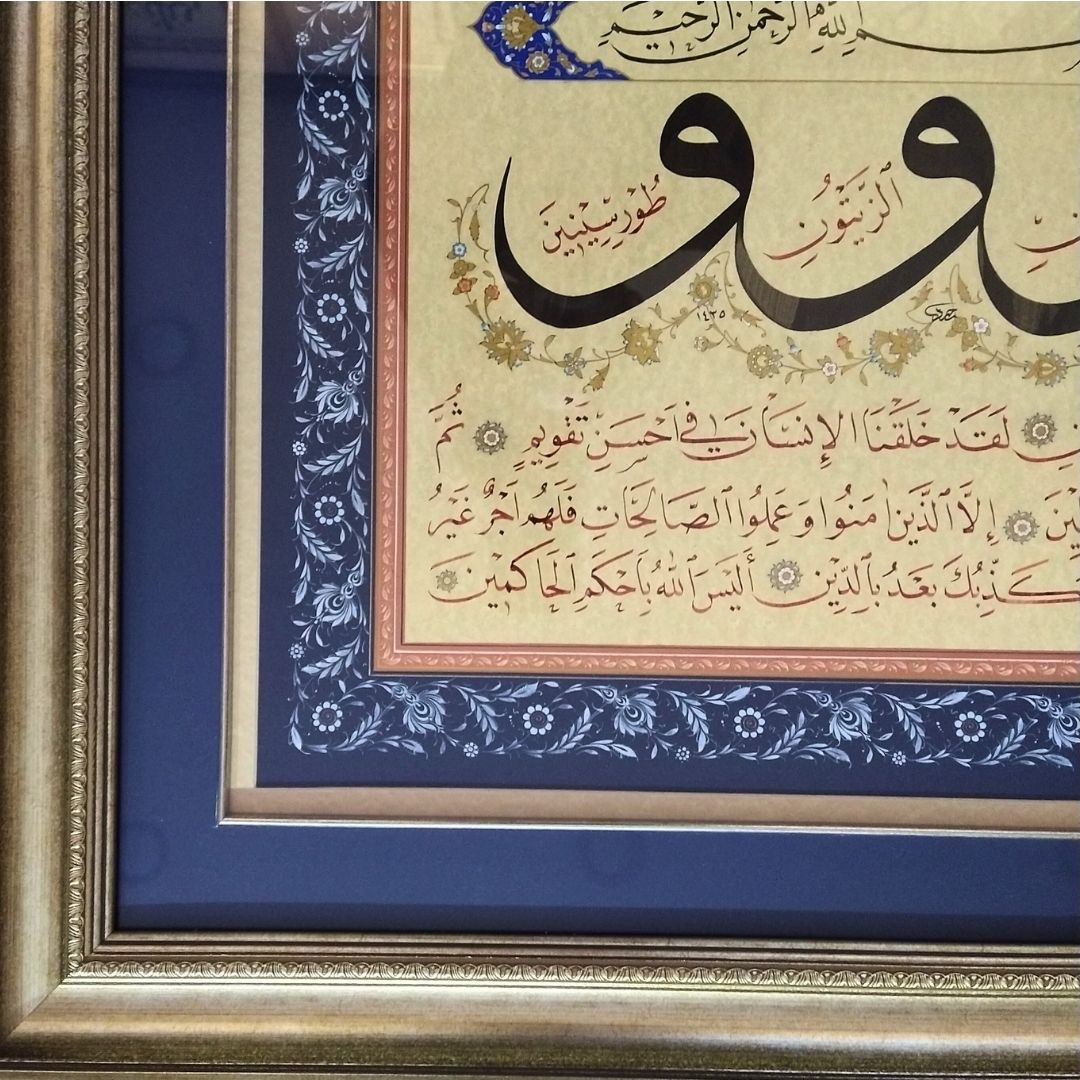 الله الرحمن الرحيم
و الزَّيْتُونِ و طُورِ سِينِينَ
١٤٣٥
لَقَدْ خَلَقْنَا الإِنْسَانَ فِي أَحْسَنِ تَقْوِيمٍ ثُمَّ
إِلَّا ٱلَّذِينَ اٰمَنُوا وَعَمِلُوا ٱلصَّالِحَاتِ فَلَهُمْ أَجْرٌ غَيْرُ
يُكَذِّبُكَ بَعْدُ بِٱلدِّينِ أَلَيْسَ ٱللهُ بِأَحْكَمِ ٱلْحَاكِمِينَ